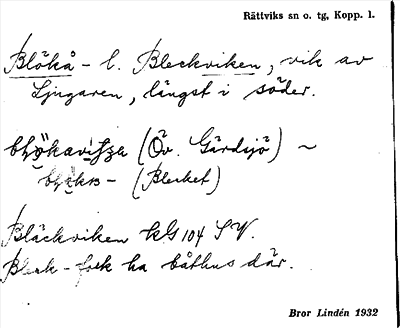 Rättviks sn o. tg, Kopp. l.
Blökå - l. Bleckviken, vik av
Ljugaren, längst i söder.
(Öv. Gärdsjö) ~
(Blecket)
Bläckviken kls 104 SV.
Bleck-folk ha båthus där.
Bror Lindén 1932